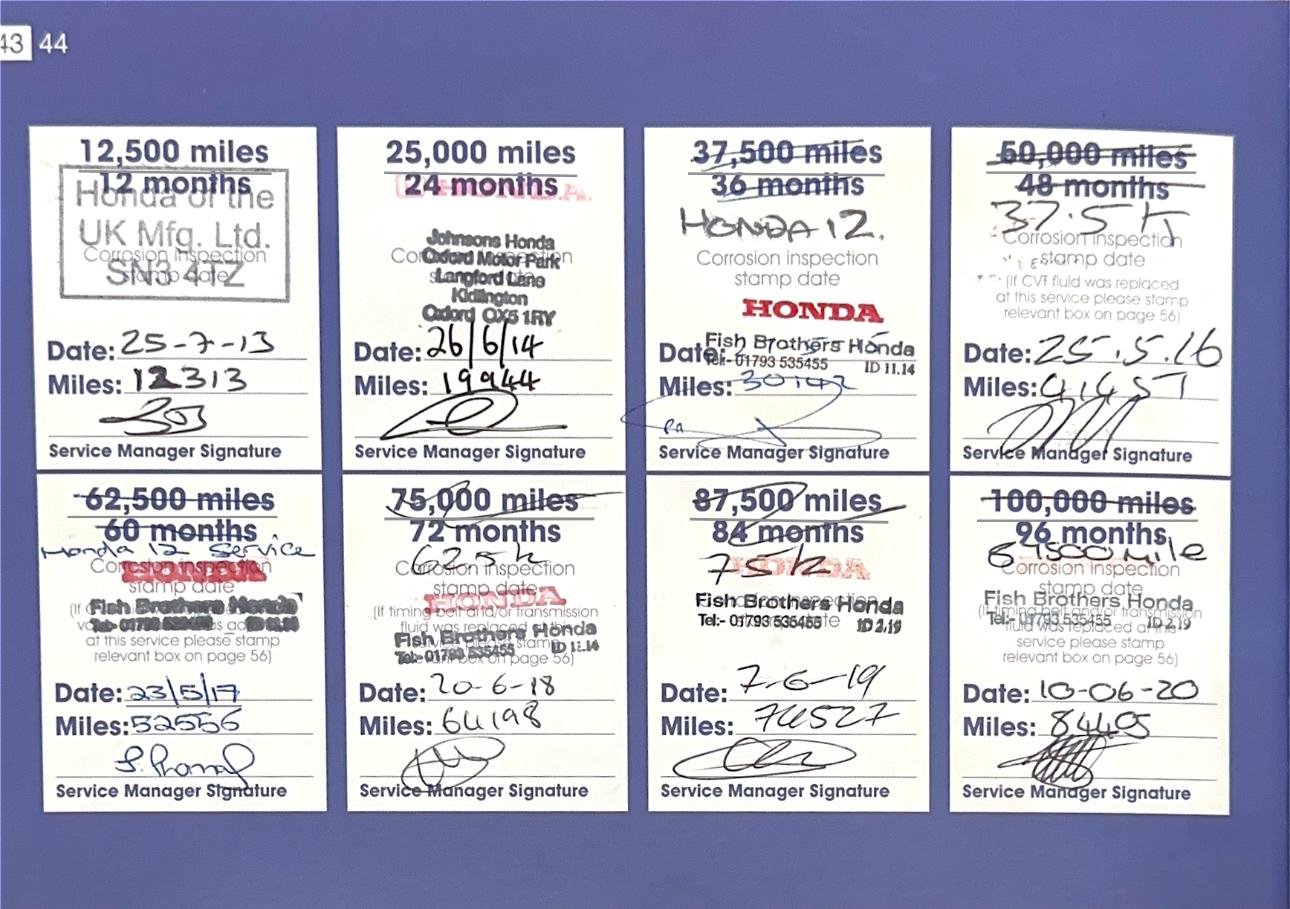 43 44
12,500 miles
12 months
Honda of the
UK Mfg. Ltd.
Corrosion inspection
stamp date
SN3 4TZ
Date: 25-7-13
Miles: 12313
Service Manager Signature
25,000 miles
24 months
HONDA
Johnsons Honda
Oxford Motor Park
Corrosion inspection
stamp date
Langford Lane
Kidlington
Oxford OX5 1RY
Date: 26/6/14
Miles: 19944
Service Manager Signature
37,500 miles
36 months
HONDA 12.
Corrosion inspection
stamp date
HONDA
Fish Brothers Honda
Tel:- 01793 535455 ID 11.14
Date:
Miles: 30142
Service Manager Signature
50,000 miles
48 months
37.5K
Corrosion inspection
stamp date
(If CVT fluid was replaced
at this service please stamp
relevant box on page 56)
Date: 25.5.16
Miles: 41457
Service Manager Signature
62,500 miles
60 months
Honda 12 Service
Corrosion inspection
HONDA
stamp date
(If
Fish Brothers Honda
Tel:- 01793 535455
at this service please stamp
relevant box on page 56)
Date: 23/5/17
Miles: 52556
Service Manager Signature
75,000 miles
72 months
62.5k
Corrosion inspection
stamp date
HONDA
(If timing belt and/or transmission
fluid was replaced
Fish Brothers Honda
Tel:- 01793 535455 ID 11.14
on page 56)
Date: 20-6-18
Miles: 64198
Service Manager Signature
87,500 miles
84 months
75k
HONDA
Fish Brothers Honda
Tel:- 01793 535455 ID 2.19
Date: 7-6-19
Miles: 74527
Service Manager Signature
100,000 miles
96 months
87500 mile
Corrosion inspection
stamp date
Fish Brothers Honda
(If timing belt and/or transmission
Tel:- 01793 535455 ID 2.19
fluid was replaced at this
service please stamp
relevant box on page 56)
Date: 10-06-20
Miles: 84405
Service Manager Signature